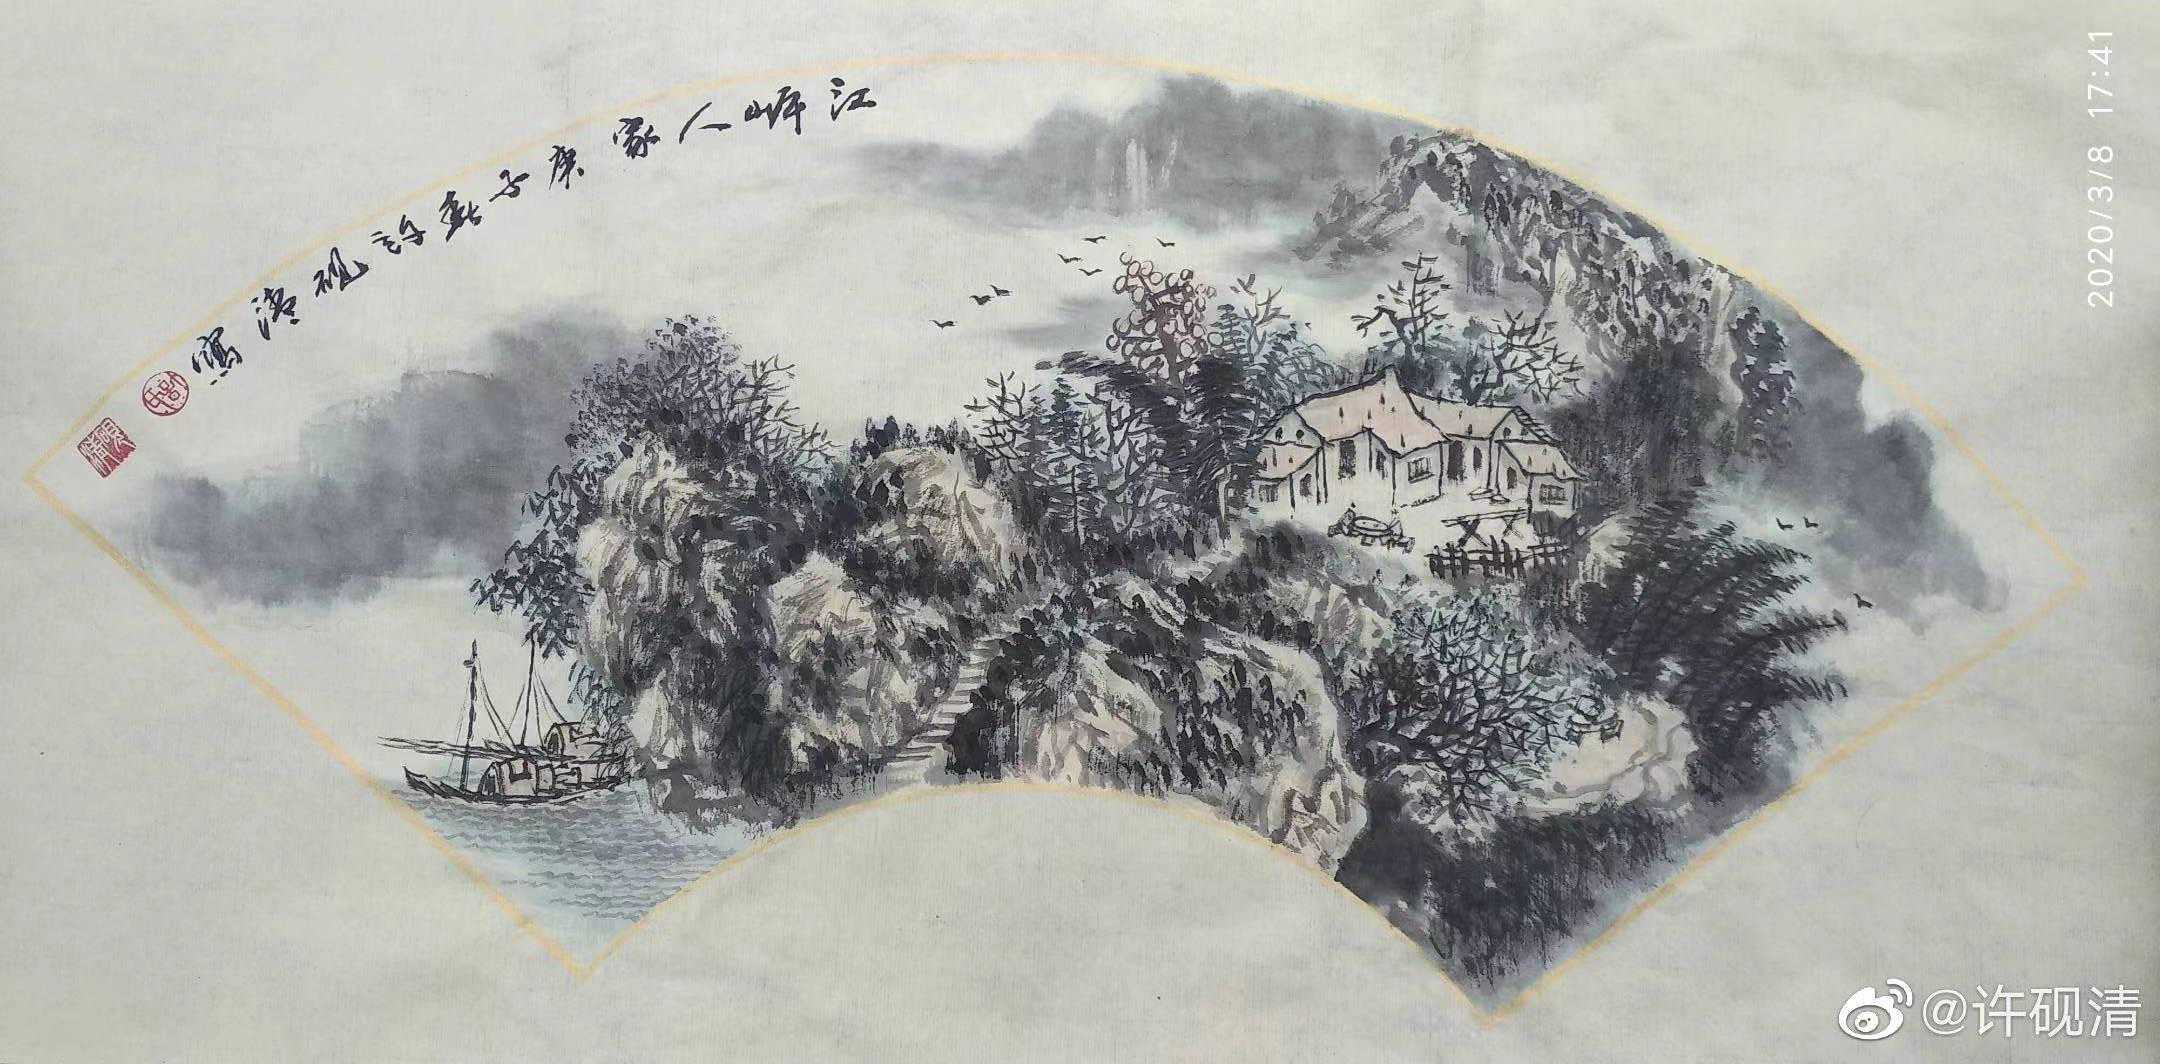 江岸人家庚子春许砚清寫
2020/3/8 17:41
@许砚清